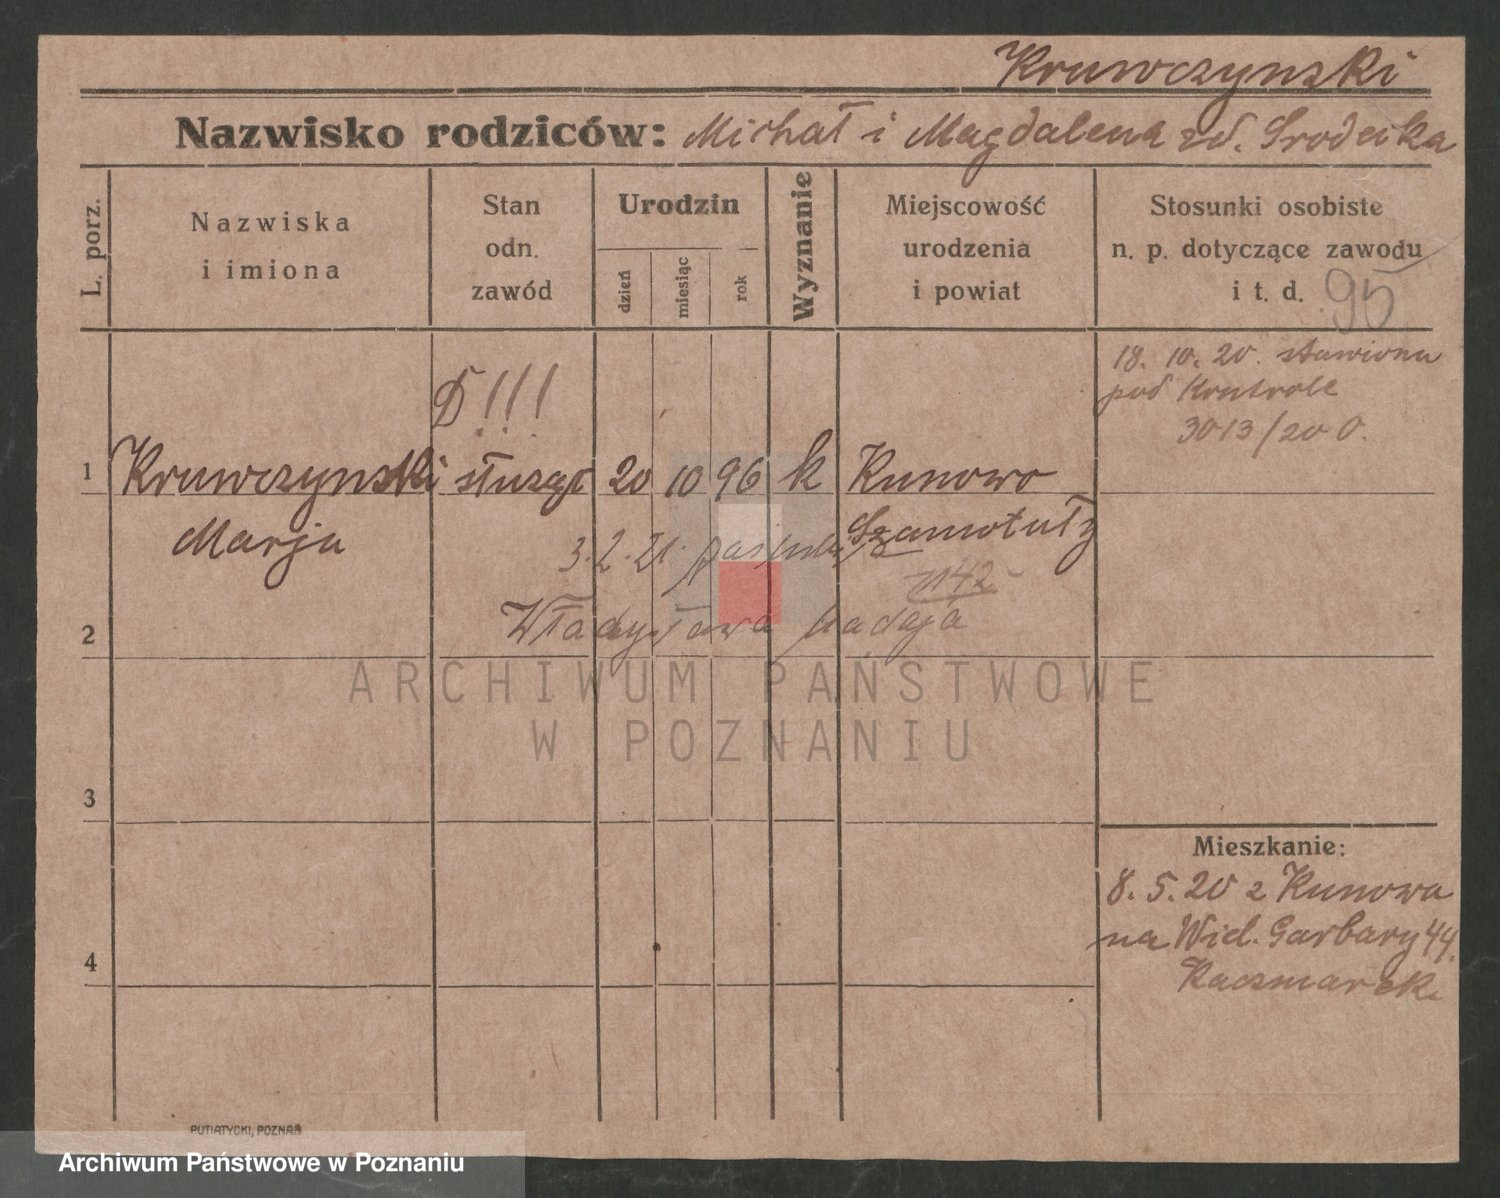 Kruwczynski
Nazwisko rodziców: Michał i Magdalena zd. Srodecka
L. porz.
Nazwiska
i imiona
Stan
odn.
zawód
Urodzin
dzień
miesiąc
rok
Wyznanie
Miejscowość
urodzenia
i powiat
Stosunki osobiste
n. p. dotyczące zawodu
i t. d. 95
18. 10. 20. stawiona
pod Kontrole
3013/20 O.
!!!
1 Kruwczynski służąc 20 10 96 k Kunowo
Marja
Szamotuły
3.2.21.
1142
2
Władysława
3
4
Mieszkanie:
8. 5. 20 z Kunowa
na Wiel. Garbary 44.
Kaczmarek.
ARCHIWUM PAŃSTWOWE
W POZNANIU
PUTIATYCKI, POZNAŃ
Archiwum Państwowe w Poznaniu